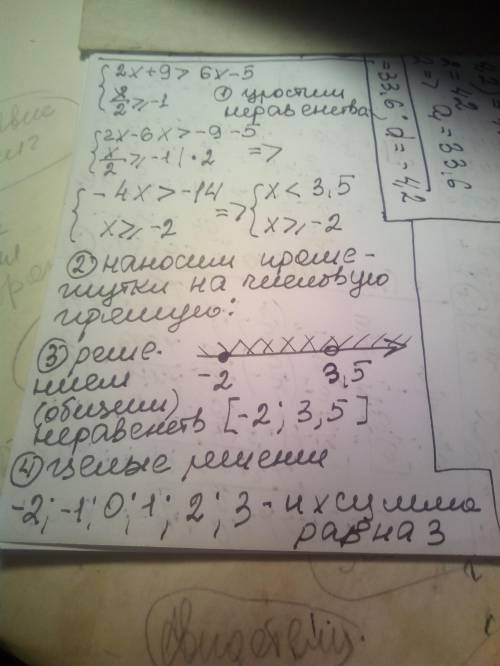 {2x+9>6x-5
{x/2⩾-1 ① упростим
неравенства
{2x-6x>-9-5
{x/2⩾-1|·2 =>
{-4x>-14
{x⩾-2 => {x<3,5
{x⩾-2
② наносим проме-
жутки на числовую
прямую:
③ реше-
нием
(общим)
неравенств [-2; 3,5]
-2 3,5
④ целые решения
-2; -1; 0; 1; 2; 3 - их сумма
равна 3
=42
a₁=33,6
=33,6; d=-4,2